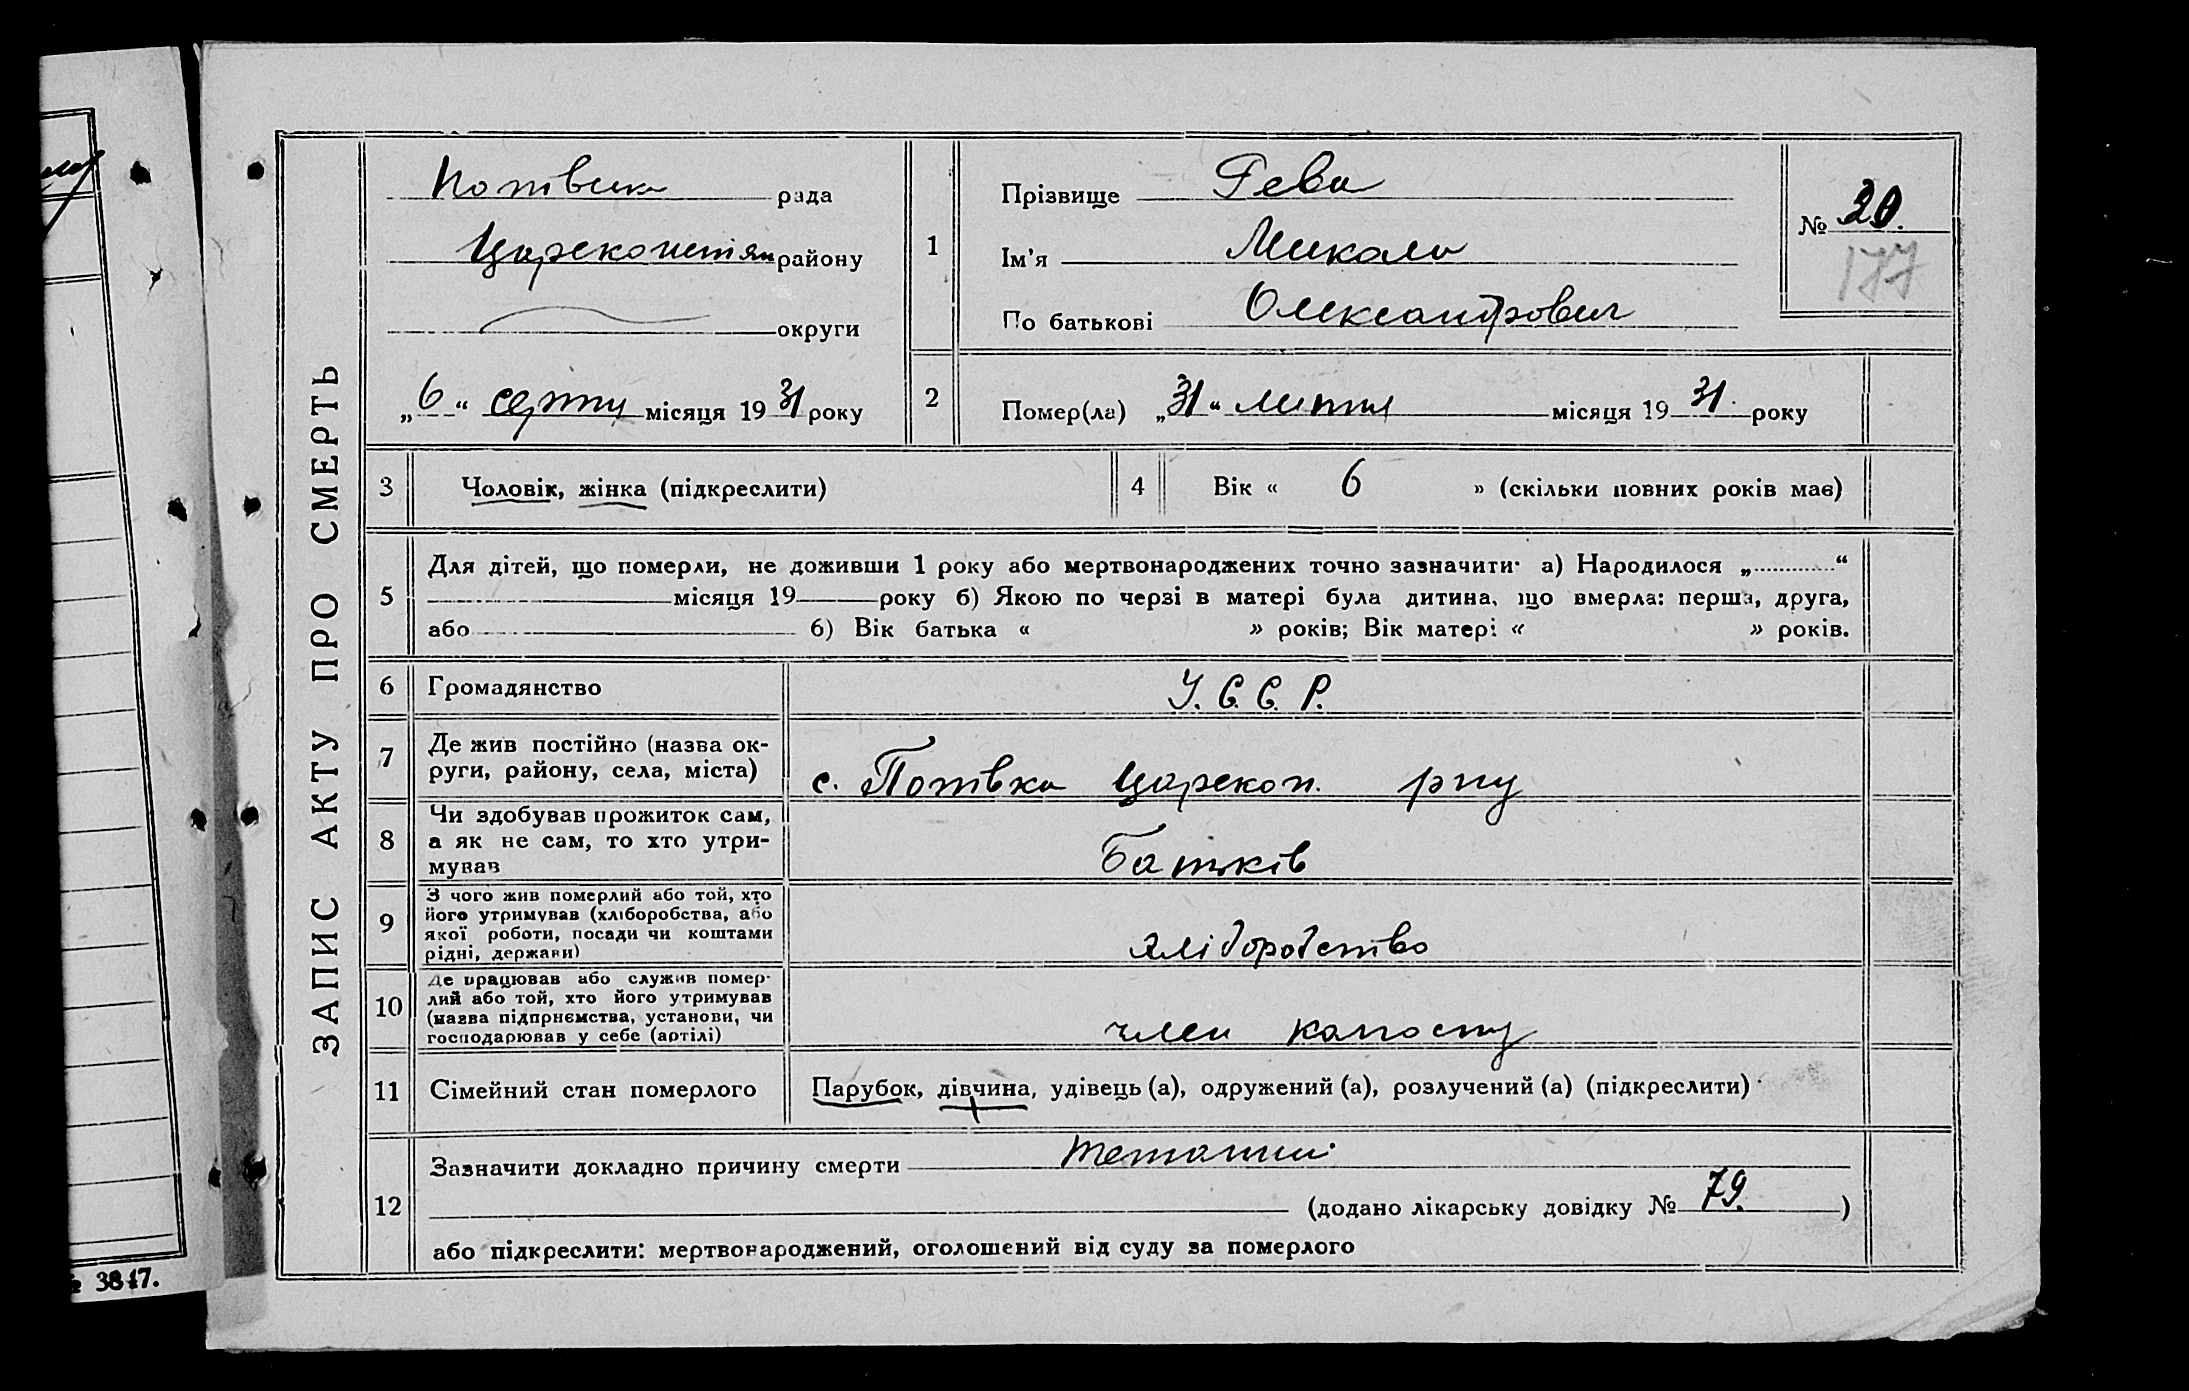 ЗАПИС АКТУ ПРО СМЕРТЬ
рада
Царекостян району
округи
„6“ серпня місяця 1931 року
1
Прізвище Рева
Ім'я Микола
По батькові Олександрович
№ 20.
177
2
Помер(ла) „31“ липня місяця 1931. року
3
Чоловік, жінка (підкреслити)
4
Вік « 6 » (скільки повних років має)
5
Для дітей, що померли, не доживши 1 року або мертвонароджених точно зазначити: а) Народилося „ “
місяця 19 року б) Якою по черзі в матері була дитина, що вмерла: перша, друга,
або 6) Вік батька « » років; Вік матері « » років.
6
Громадянство
У. С. С. Р.
7
Де жив постійно (назва ок-
руги, району, села, міста)
с. Царекон. р-ну
8
Чи здобував прожиток сам,
а як не сам, то хто утри-
мував
Батьків
9
З чого жив померлий або той, хто
його утримував (хліборобства, або
якої роботи, посади чи коштами
рідні, держави)
хліборобство
10
Де працював або служив помер-
лий або той, хто його утримував
(назва підприємства, установи, чи
господарював у себе (артілі)
член колгоспу
11
Сімейний стан померлого
Парубок, дівчина, удівець (а), одружений (а), розлучений (а) (підкреслити)
12
Зазначити докладно причину смерти
(додано лікарську довідку № 79. )
або підкреслити: мертвонароджений, оголошений від суду за померлого
№ 3847.